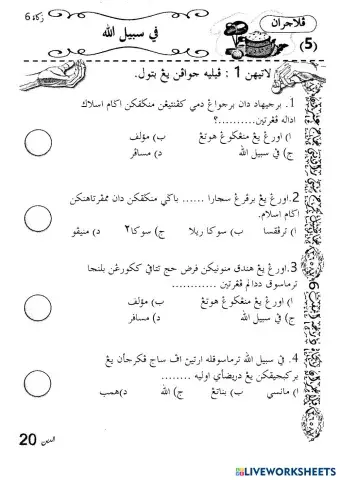 زكاة 6
ڤلاجران
(5)
في سبيل الله
لاتيهن 1 : ڤيليه جواڤن يڠ بتول.
1. برجيهاد دان برجواڠ دمي كڤنتيڠن منڬقكن اݢام اسلام
اداله ڤڠرتين..........؟
ا) اورڠ يڠ منڠݢوڠ هوتڠ
ب) مؤلف
ج) في سبيل الله
د) مسافر
2. اورڠ يڠ برڤرڠ سچارا ...... باݢي منڬقكن دان ممڤرتاهنكن
اݢام اسلام.
ا) ترڤقسا
ب) سوكا ريلا
ج) سوكا٢
د) منيڤو
3. اورڠ يڠ هندق منونايكن فرض حج تتاڤي ككورڠن بلنجا
ترماسوق ددالم ڤڠرتين ............
ا) اورڠ يڠ منڠݢوڠ هوتڠ
ب) مؤلف
ج) في سبيل الله
د) مسافر
4. في سبيل الله ترماسوقله ارتين اڤ ساج ڤكرجأن يڠ
بركبجيقكن يڠ دريضأي اوليه .........
ا) مانسي
ب) بناتڠ
ج) الله
د) همب
20
LIVEWORKSHEETS